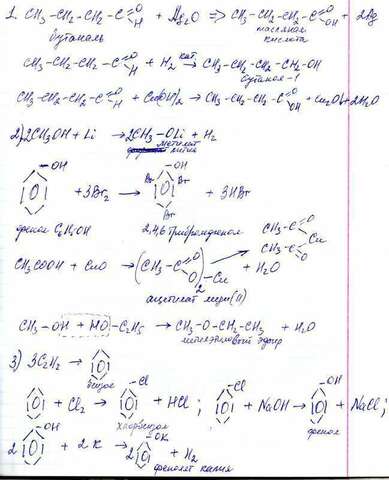 1. CH₃-CH₂-CH₂-C=O-H + Ag₂O ⇒ CH₃-CH₂-CH₂-C=O-OH + 2Ag
бутаналь масляная кислота
CH₃-CH₂-CH₂-C=O-H + H₂ кат.→ CH₃-CH₂-CH₂-CH₂-OH
бутанол-1
CH₃-CH₂-CH₂-C=O-H + Cu(OH)₂ → CH₃-CH₂-CH₂-C=O-OH + Cu₂O + 2H₂O
2) 2CH₃OH + Li → 2CH₃-OLi + H₂
метилат лития
-OH + 3Br₂ → -OH Br Br Br + 3HBr
фенол C₆H₅OH 2,4,6 трибромфенол
CH₃COOH + CuO → (CH₃-C=O-O)₂-Cu + H₂O
CH₃-C=O-O CH₃-C=O-O Cu
ацетилат меди(II)
CH₃-OH + HO-C₂H₅ → CH₃-O-CH₂-CH₃ + H₂O
метилэтиловый эфир
3) 3C₂H₂ →
бензол
+ Cl₂ → -Cl + HCl ; -Cl + NaOH → -OH + NaCl ;
хлорбензол фенол
2 -OH + 2K → 2 -OK + H₂
фенолят калия